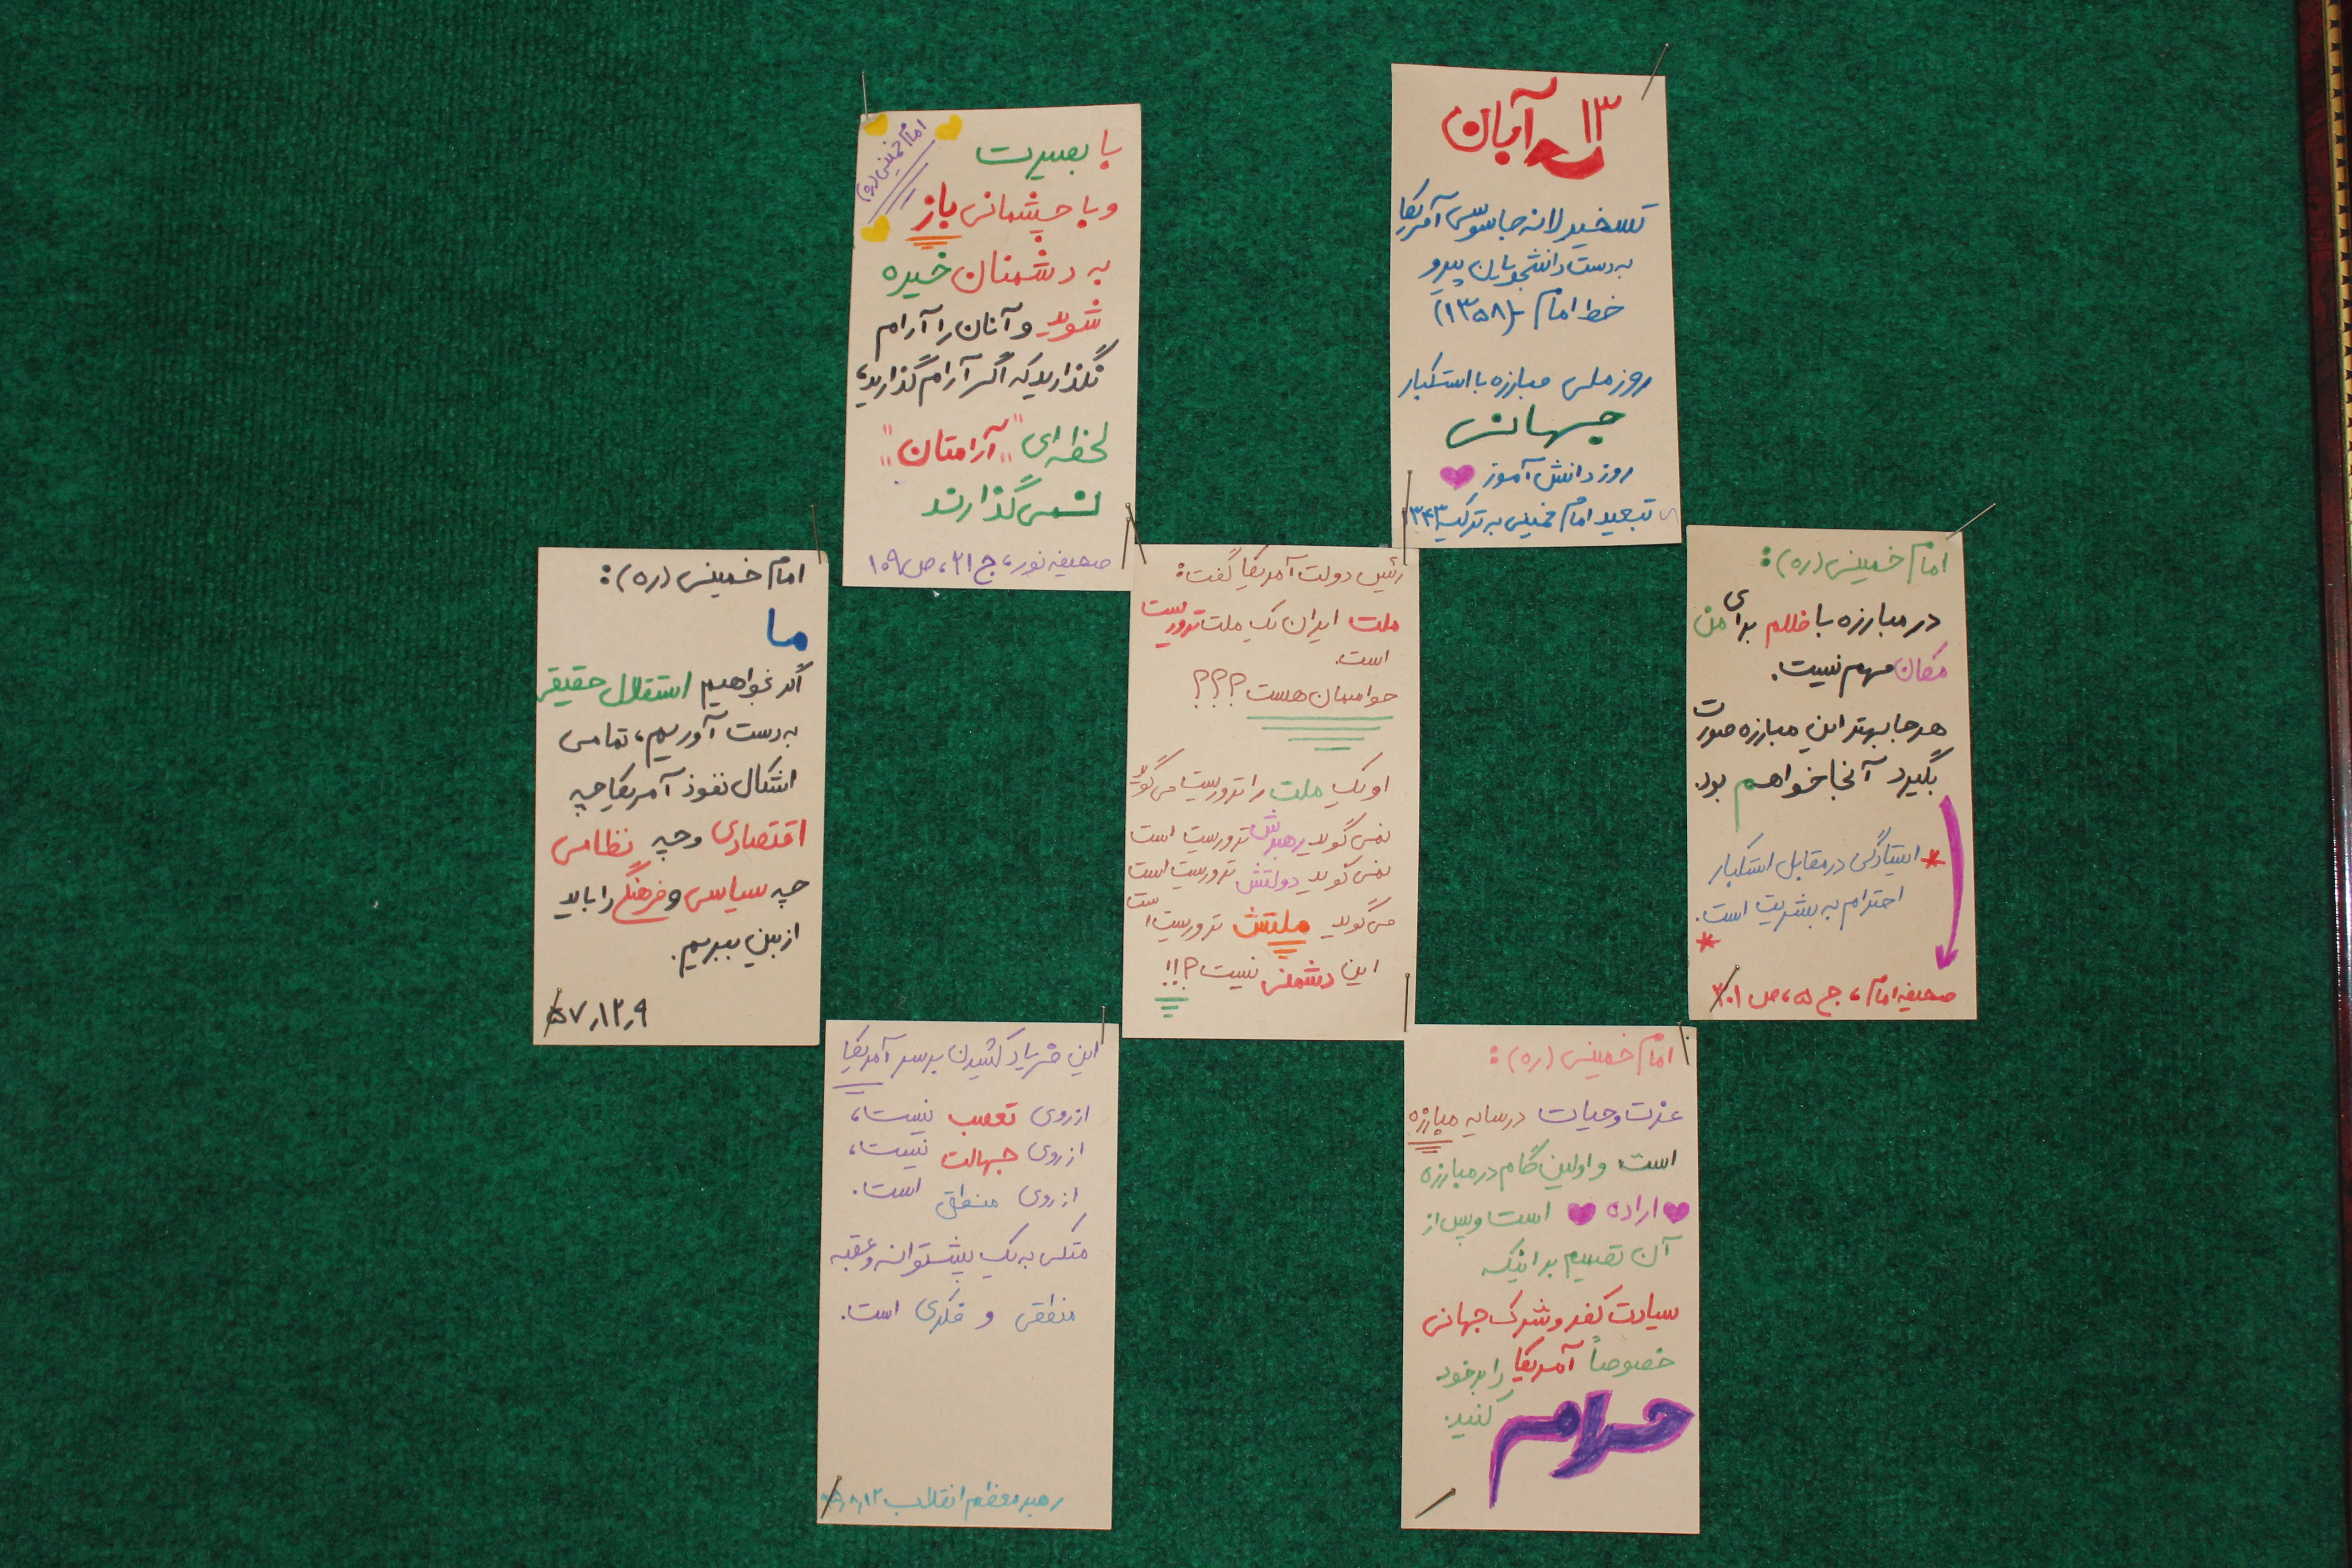 ۱۳ آبان
تسخیر لانه جاسوسی آمریکا
به دست دانشجویان پیرو
خط امام -(۱۳۵۸)
روز ملی مبارزه با استکبار
جهانی
روز دانش آموز
تبعید امام خمینی به ترکیه ۱۳۴۳
امام خمینی (ره)
با بصیرت
و با چشمانی باز
به دشمنان خیره
شوید و آنان را آرام
نگذارید که اگر آرام گذارید،
لحظه ای "آرامتان"
نمی گذارند
صحیفه نور، ج ۲۱، ص ۱۰۹
امام خمینی (ره):
در مبارزه با ظلم برای من
مکان مهم نیست.
هر جا بهتر این مبارزه صورت
بگیرد آنجا خواهم بود.
* ایستادگی در مقابل استکبار
احترام به بشریت است.
*
صحیفه امام، ج ۵، ص ۳۰۱
رئیس دولت آمریکا گفت:
ملت ایران یک ملت تروریست
است.
حواسمان هست؟؟؟
او یک ملت را تروریست می گوید
نمی گوید رهبرش تروریست است
نمی گوید دولتش تروریست است
می گوید ملتش تروریست است
این دشمنی نیست؟!!
امام خمینی (ره):
ما
اگر بخواهیم استقلال حقیقی
به دست آوریم، تمامی
اشکال نفوذ آمریکا چه
اقتصادی و چه نظامی
چه سیاسی و فرهنگی را باید
از بین ببریم.
۵۷٫۱۲٫۹
امام خمینی (ره):
عزت و حیات در سایه مبارزه
است و اولین گام در مبارزه
اراده است و پس از
آن تصمیم بر اینکه
سیادت کفر و شرک جهانی
خصوصاً آمریکا را بر خود
حرام کنید.
این فریاد کشیدن بر سر آمریکا
از روی تعصب نیست،
از روی جهالت نیست،
از روی منطق است.
متکی به یک پشتوانه و عقبه
منطقی و فکری است.
رهبر معظم انقلاب ۸٫۱۲